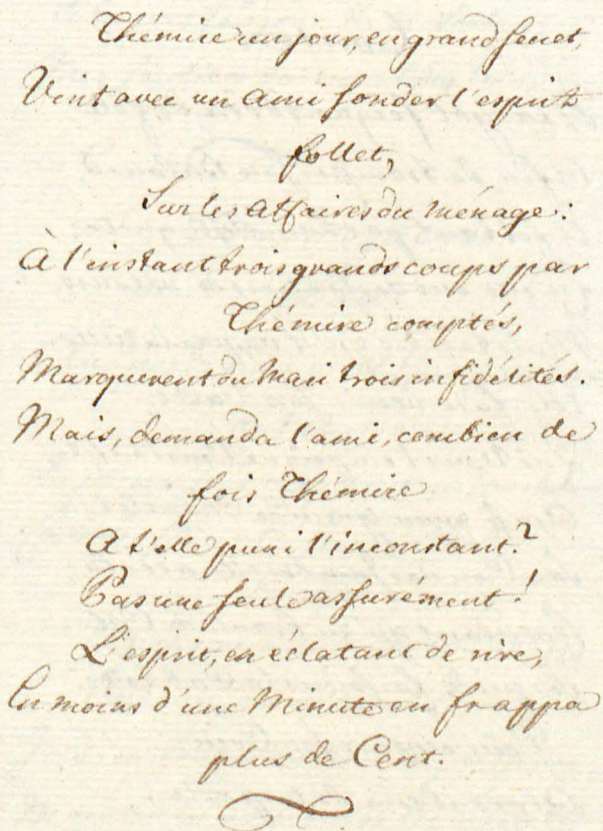 Thémire un jour, en grand secret,
Vint avec un ami sonder l'esprit
follet,
Sur les affaires du ménage:
À l'instant trois grands coups par
Thémire comptés,
Marquerent du Mari trois infidélités.
Mais, demanda l'ami, combien de
fois Thémire
A t'elle puni l'inconstant?
Pas une seule assurément!
L'esprit, en éclatant de rire,
En moins d'une Minute en frappa
plus de Cent.